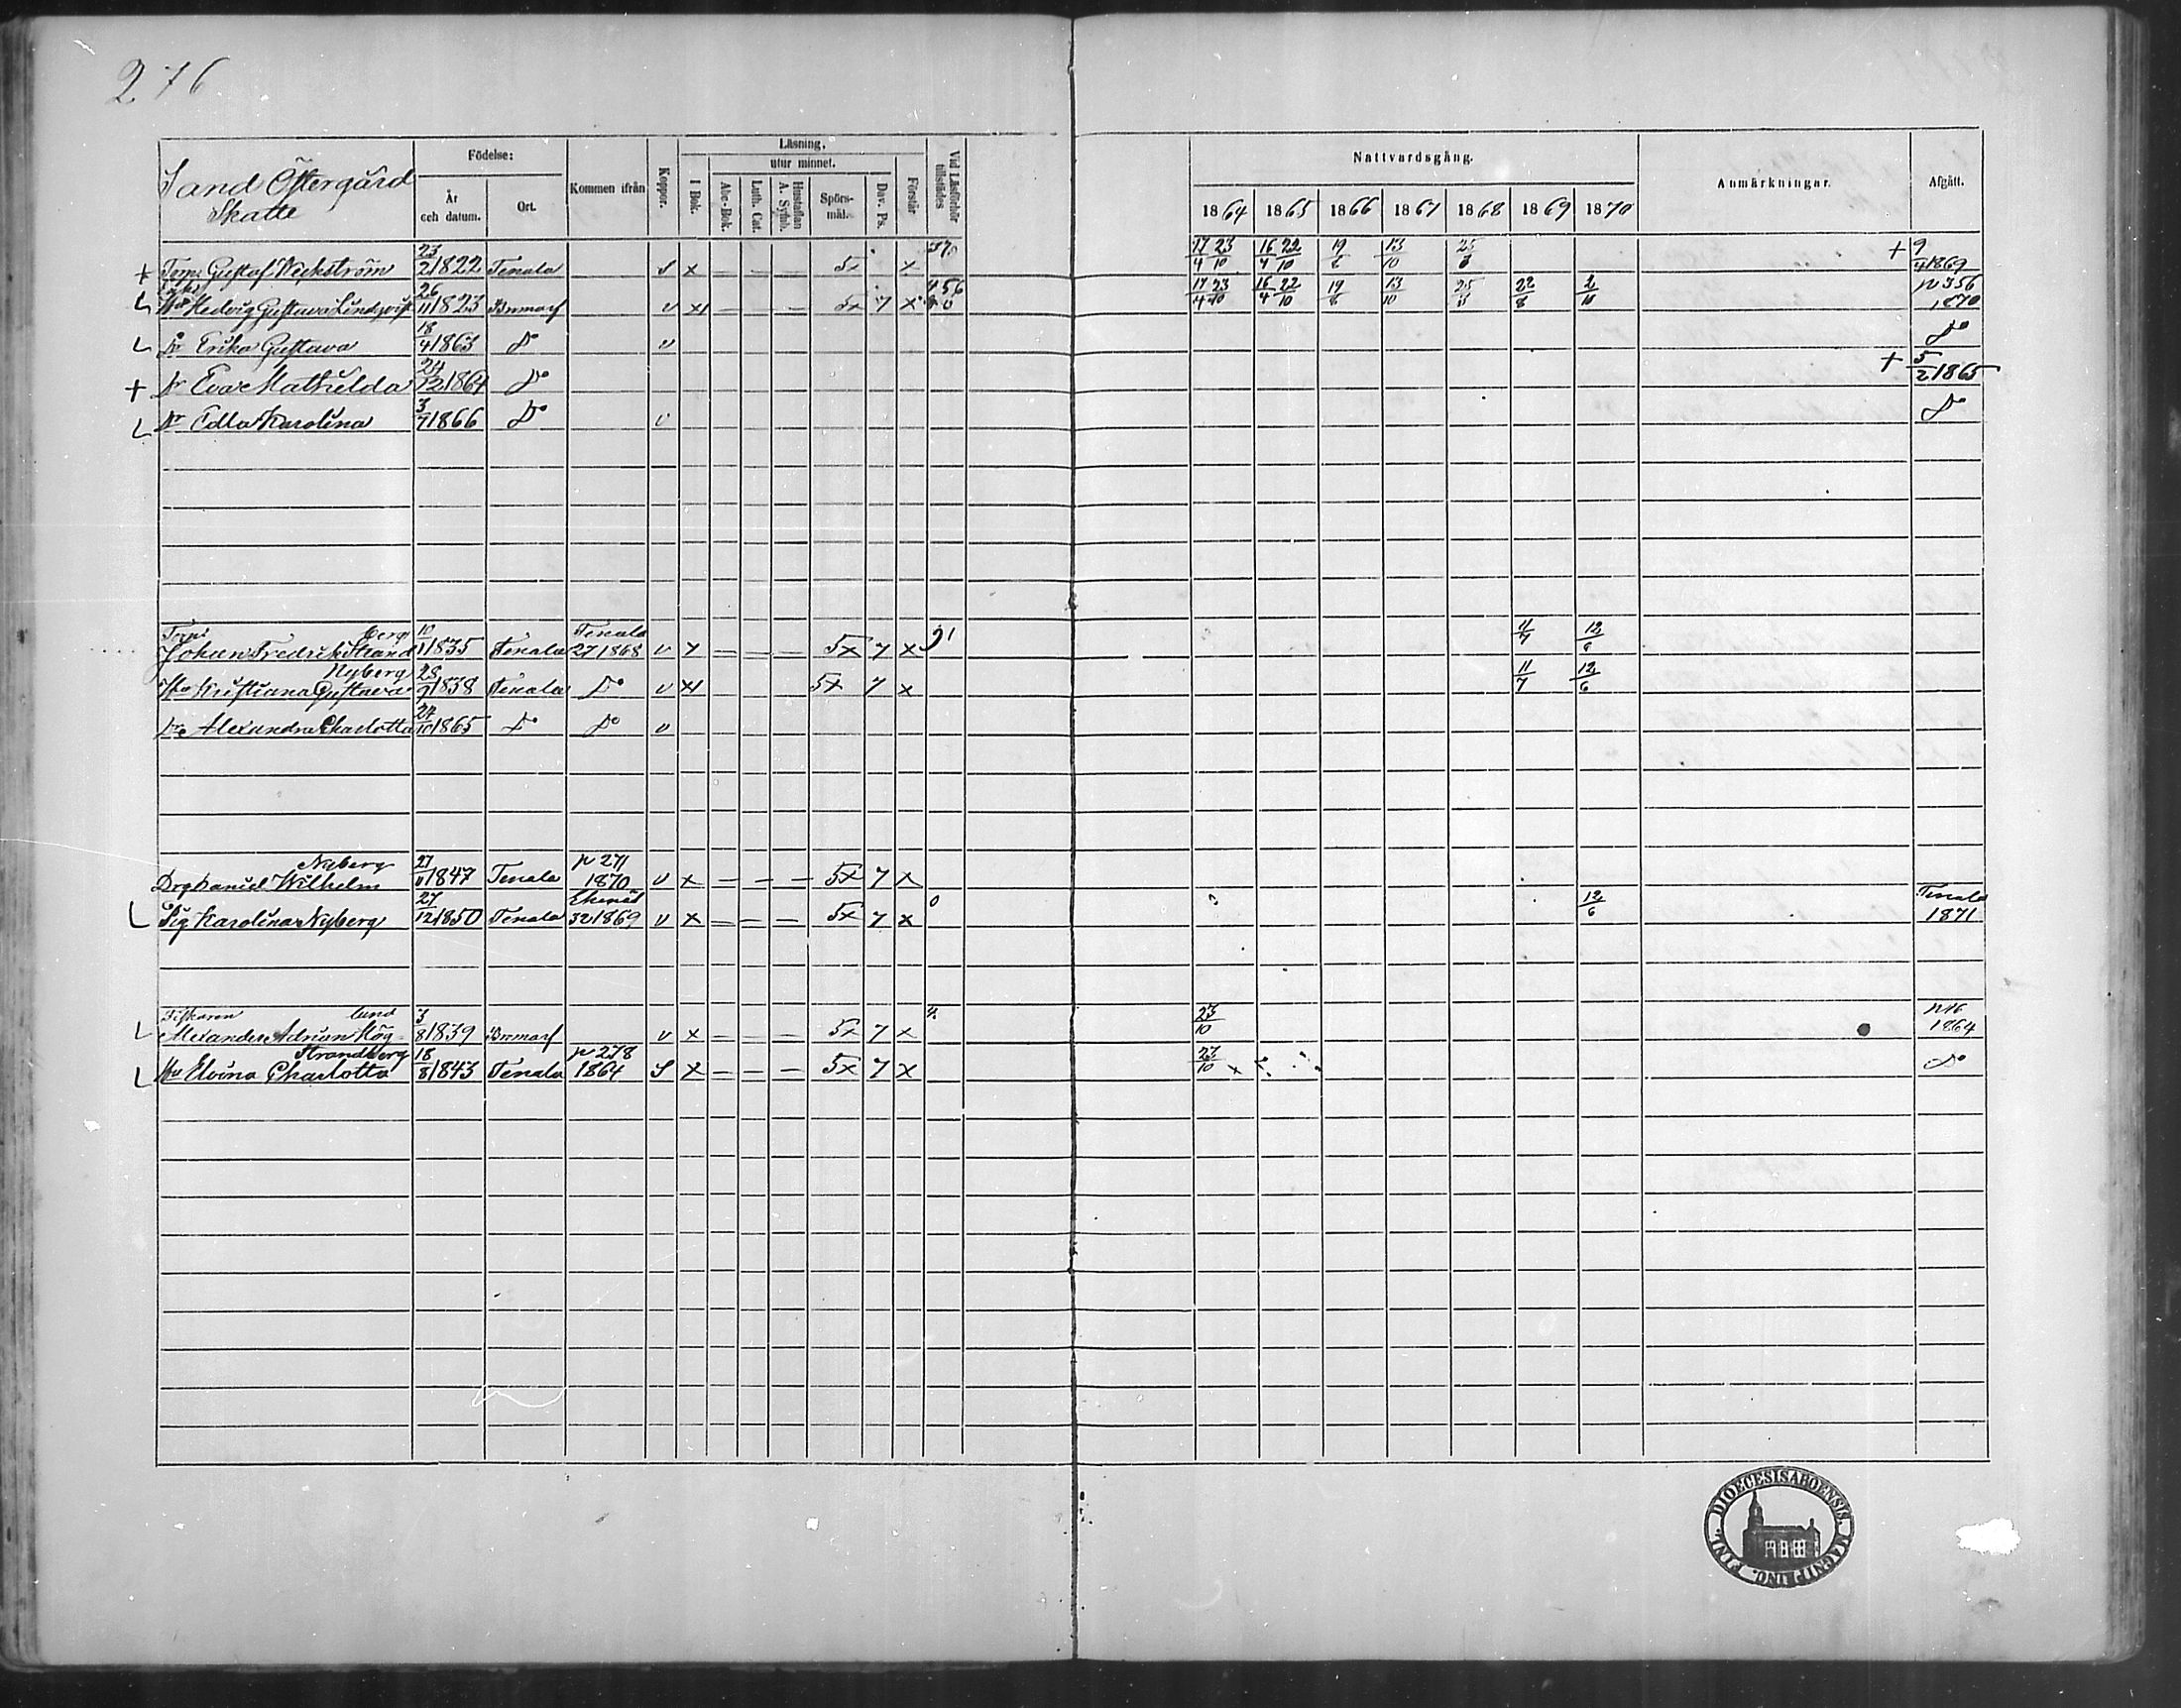 276
Sand Östergård
Skatte
Födelse:
År och datum.
Ort.
Kommen ifrån
Koppor.
Läsning,
utur minnet.
I Bok.
Abc-Bok.
Luth. Cat.
Hustaflan A. Symb.
Spörsmål.
Dav. Ps.
Förstår
Vid Läsförhör tillstädes
Nattvardsgång.
1864 1865 1866 1867 1868 1869 1870
Anmärkningar.
Afgått.
+ Torp. Gustaf Weckström 23/2 1822 Tenala S x 5x x 17/4 23/10 16/4 22/10 19/6 13/10 + 9/4 1869
Hedvig Gustava Lindqvist 26/11 1823 Bromarf v x — — — 5x 7 x 17/4 23/10 16/4 22/10 19/6 13/10 22/8 2/10 p 356 1870
Dr Erika Gustava 18/4 1863 Do v Do
+ Dr Eva Mathilda 24/12 1864 Do + 5/2 1865
Dr Edla Karolina 3/7 1866 Do v Do
Torp. Johan Fredrik Strandberg 10/1 1835 Tenala Tenala 27 1868 v x — — — 5x 7 x 11/7 12/6
Hu Kristiana Gustava Nyberg 28/7 1838 Tenala Do v x 5x 7 x 11/7 12/6
Dr Alexandra Charlotta 24/10 1865 Do Do v
Drg Daniel Wilhelm Nyberg 27/11 1847 Tenala p 271 1870 v x — — — 5x 7 x
Pig Karolina Nyberg 27/12 1850 Tenala Ekenäs 32 1869 v x — — — 5x 7 x 0 12/6 Tenala 1871
Fiskaren Alexander Adrian Höglund 3/8 1839 Bromarf v x — — — 5x 7 x 23/10 1864
Hu Elvina Charlotta Strandberg 18/8 1843 Tenala p 278 1864 S x — — — 5x 7 x 23/10 Do
DIOECESIS ABOENSIS. MAGNI PRINC. FINL.